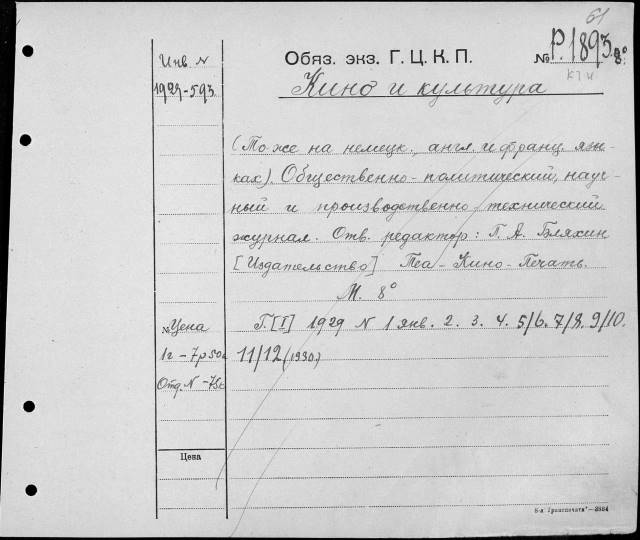 61
Инв. N
1929-593
Обяз. экз. Г. Ц. К. П.
№ Р.1893. 8°
Кино и культура
(То же на немецк., англ. и франц. язы-
ках). Общественно-политический, науч-
ный и производственно-технический
журнал. Отв. редактор: П. А. Бляхин
[Издательство] Теа-Кино-Печать.
М. 8°
Г. [I] 1929 N 1 янв. 2. 3. 4. 5/6. 7/8. 9/10.
11/12 (1930.)
№ Цена
1г - 7р 50к
Отд. N - 75к
Цена
6-я „Транспечати“ — 3884